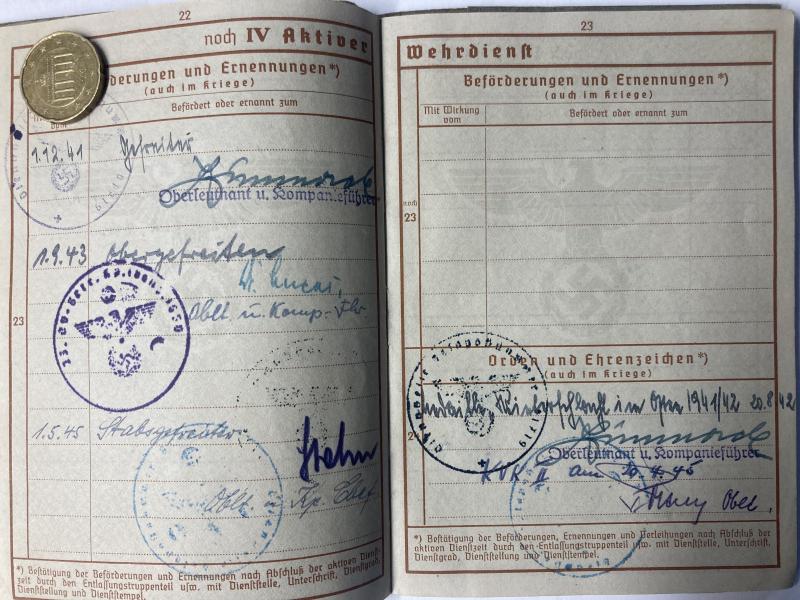 22
noch IV Aktiver
derungen und Ernennungen*)
(auch im Kriege)
Befördert oder ernannt zum
1.12.41 Gefreiter
Oberleutnant u. Kompanieführer
1.9.43 Obergefreiten
Oblt u. Komp.-Fhr
23
1.5.45 Stabsgefreiter
Oblt u. Kp. Chef
*) Bestätigung der Beförderungen und Ernennungen nach Abschluß der aktiven Dienst-
zeit durch den Entlassungstruppenteil usw. mit Dienststelle, Unterschrift, Dienstgrad,
Dienststellung und Dienststempel.
23
Wehrdienst
Beförderungen und Ernennungen*)
(auch im Kriege)
Mit Wirkung vom
Befördert oder ernannt zum
noch
23
Orden und Ehrenzeichen*)
(auch im Kriege)
Medaille Winterschlacht im Osten 1941/42 20.8.42
Oberleutnant u. Kompanieführer
KVK II am 20.4.45
Oblt.
*) Bestätigung der Beförderungen, Ernennungen und Verleihungen nach Abschluß der
aktiven Dienstzeit durch den Entlassungstruppenteil usw. mit Dienststelle, Unterschrift,
Dienstgrad, Dienststellung und Dienststempel.